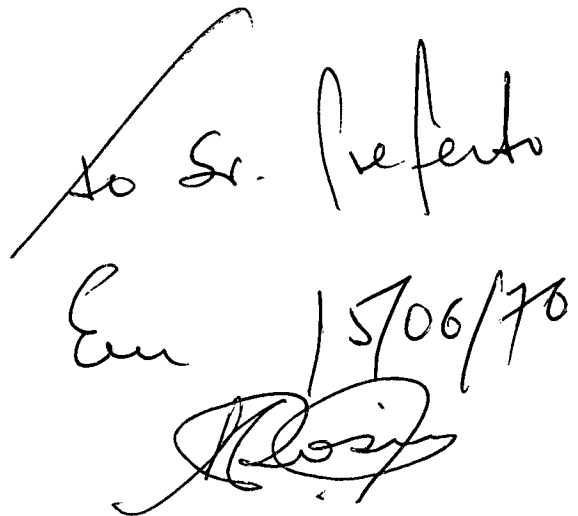 Ao Sr. Prefeito
Em 15/06/70